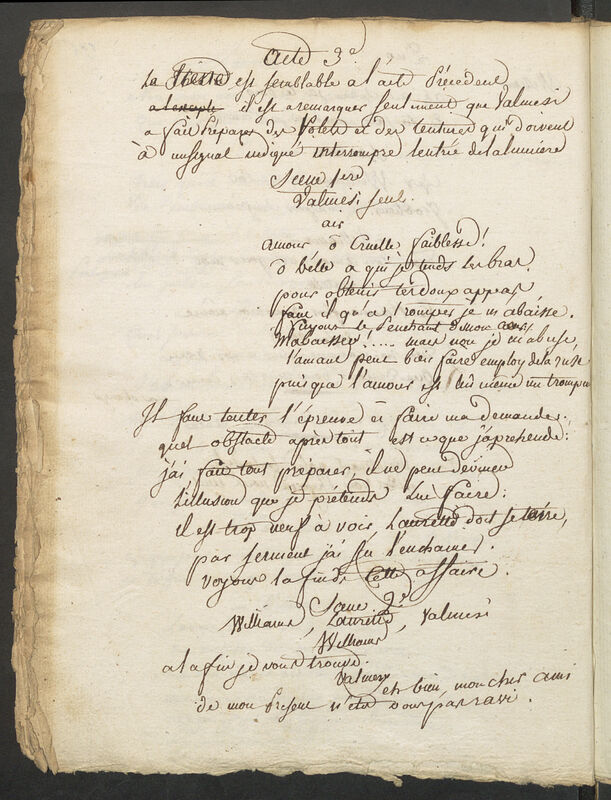 Acte 3e
La Scene est semblable a l'acte Précédent
a lexcepte il est a remarquer seulement que Valmesi
a fait Préparer des Volets et des tentures qui doivent
à un signal indiqué interrompre lentrée de la lumiere
Scene 1ere
Valmesi seul.
air
amour ô Cruelle faiblesse!
ô belle a qui je tends les bras
pour obtenir tes doux appas
faut il qu'a tromper je m'abaisse.
Suivons le Penchant de mon
Mabaisser! .... mais non je m'abuse,
l'amant peut bien faire employ de la ruse
puisque l'amour est lui meme un trompeur
Il faut tenter l'épreuve et faire ma demande.
quel obstacle après tout est ce que j'aprehende:
j'ai fait tout préparer, il ne peut deviner
L'illusion que je prétends lui faire:
il est trop neuf à voir, Laurette doit se taire,
par serment j'ai su l'enchainer.
voyons la fin de Cette affaire.
Scene 2e
Williams, Laurette, Valmesi
Williams
a la fin je vous trouve.
Valmesi
eh bien, mon cher ami
de mon Present n'etes vous pas ravi.